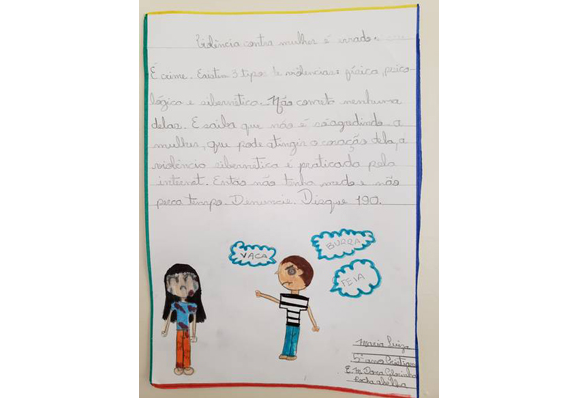 Violência contra mulher é errado e
É crime. Existem 3 tipos de violências física, psico
lógica e sibernética. Não cometa nenhuma
delas. E saiba que não é só agredindo a
mulher, que pode atingir o coração dela, a
violência sibernética e praticada pela
internet. Então não tenha medo e não
perca tempo. Denuncie. Disque 190.
VACA
BURRA
FEIA
5º ano
E. M. Dona